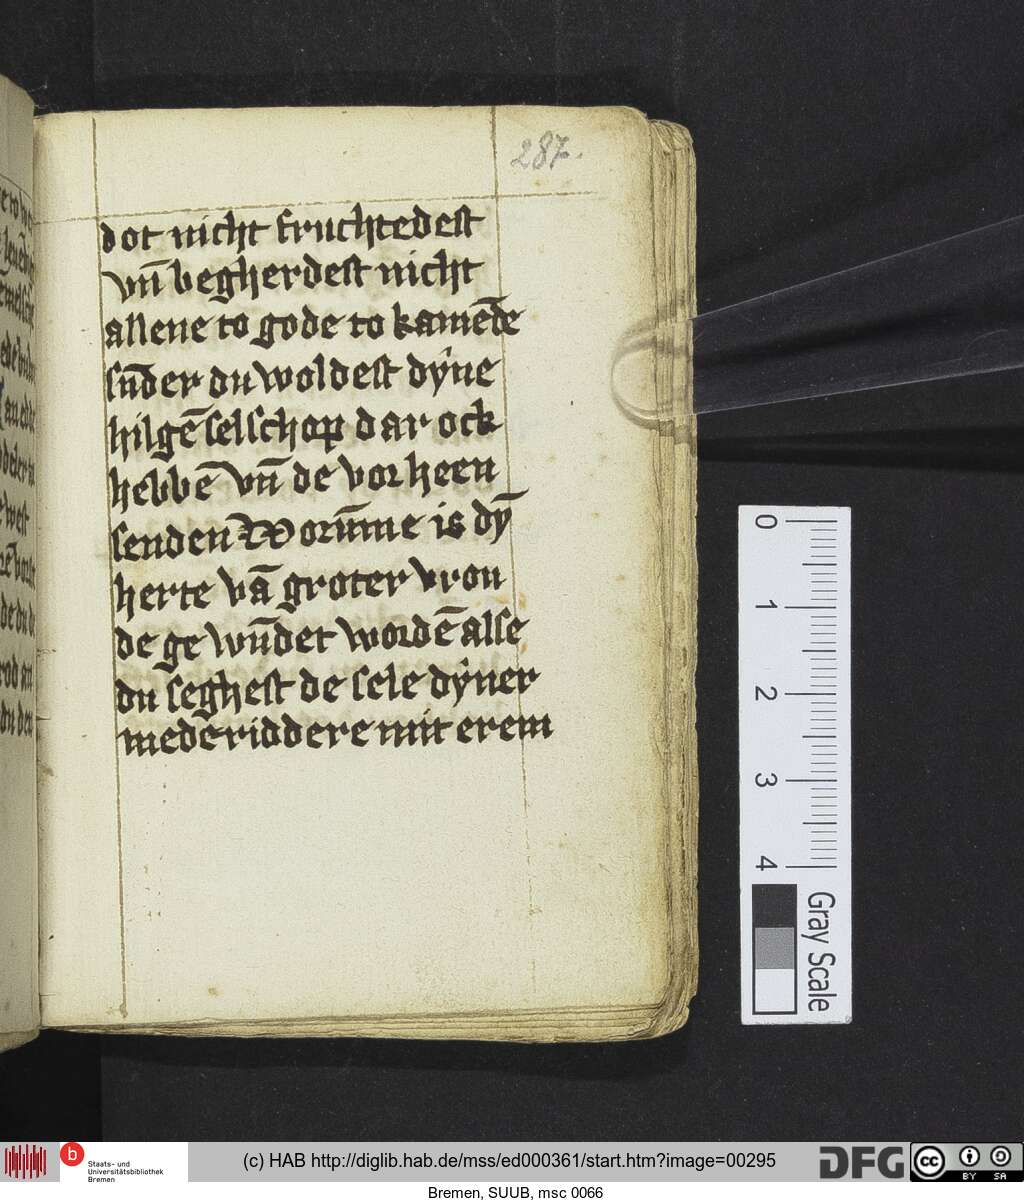 287.
dot nicht fruchtedest
vn̄ begherdest nicht
allene to gode to kamēde
sūder du woldest dyne
hilgē selschop dar ock
hebbē vn̄ de vor heen
senden Worūme is dȳ
herte vā groter vron
de ge wūdet wordē alse
du seghest de sele dyner
mede riddere mit erem
0
1
2
3
4
Gray Scale
b Staats- und
Universitätsbibliothek
Bremen
(c) HAB http://diglib.hab.de/mss/ed000361/start.htm?image=00295
DFG
cc BY SA
Bremen, SUUB, msc 0066